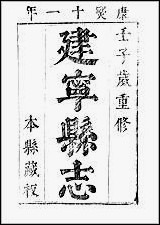 康熙十一年
壬子歲重修
建寧縣志
本縣藏板